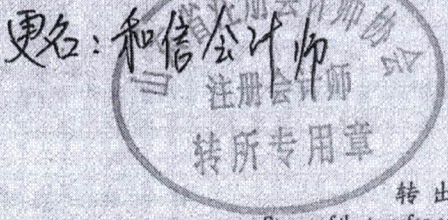 更名：和信会计师
省注册会计师协会
注册会计师
转所专用章
转出